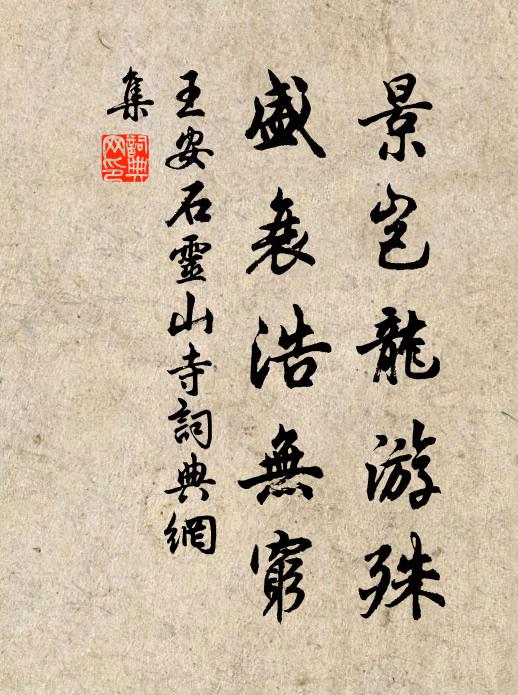 景岂龍游殊
盛衰浩無窮
王安石靈山寺詞典網
集
詞典
网印